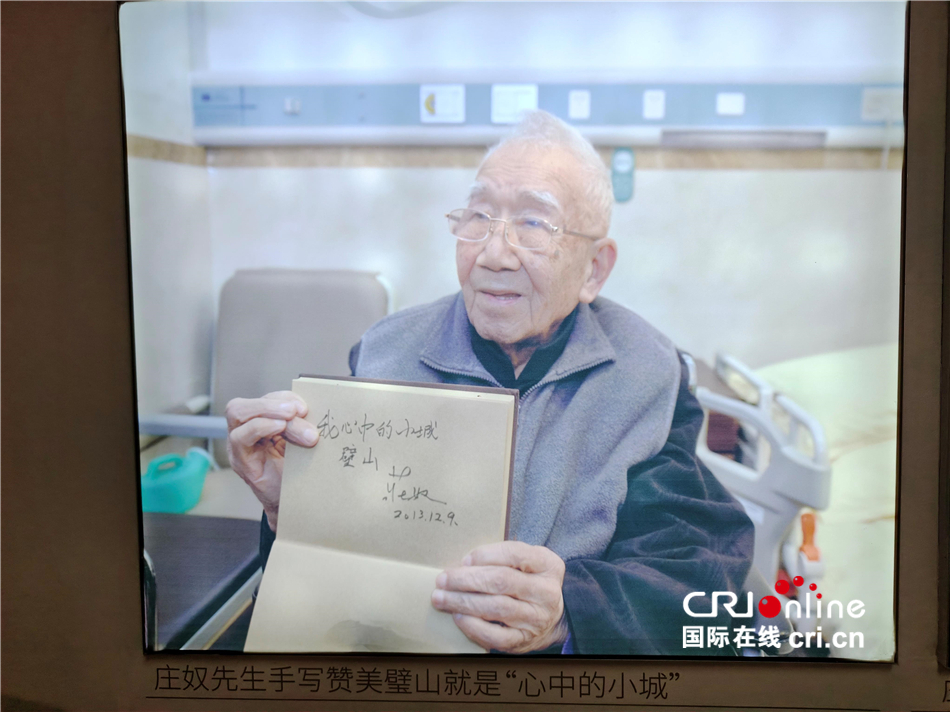 我心中的小城
璧山
庄奴
2013.12.9.
CRI online
国际在线 cri.cn
庄奴先生手写赞美璧山就是“心中的小城”